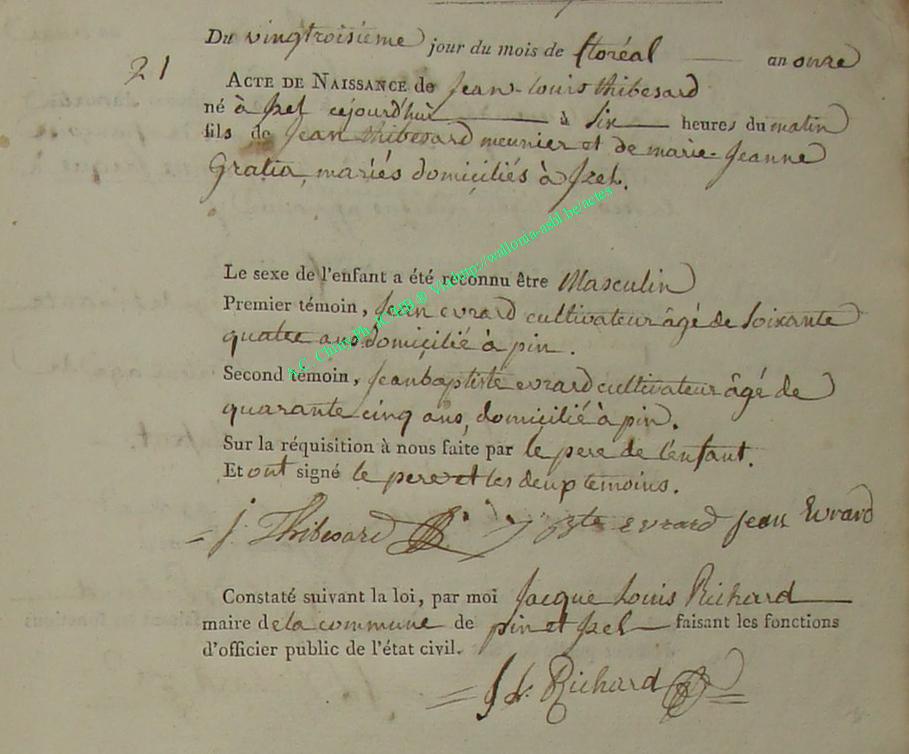 Du vingtroisième jour du mois de floréal an onze
21
ACTE DE NAISSANCE de Jean-Louis thibesard
né à Izel cejourd'hui à Six heures du matin
fils de Jean thibesard meunier et de marie-Jeanne
Gratia, mariés domiciliés à Izel.
Le sexe de l'enfant a été reconnu être Masculin
Premier témoin, Jean evrard cultivateur âgé de Soixante
quatre ans domicilié à pin.
Second témoin, Jeanbaptiste evrard cultivateur âgé de
quarante cinq ans, domicilié à pin.
Sur la réquisition à nous faite par le pere de l'enfant.
Et ont signé le pere et les deux temoins.
J. Thibesard evrard Jean Evrard
Constaté suivant la loi, par moi Jacque Louis Richard
maire de la commune de pin et Izel faisant les fonctions
d'officier public de l'état civil.
J L. Richard
http://wallonia-asbl.be/actes